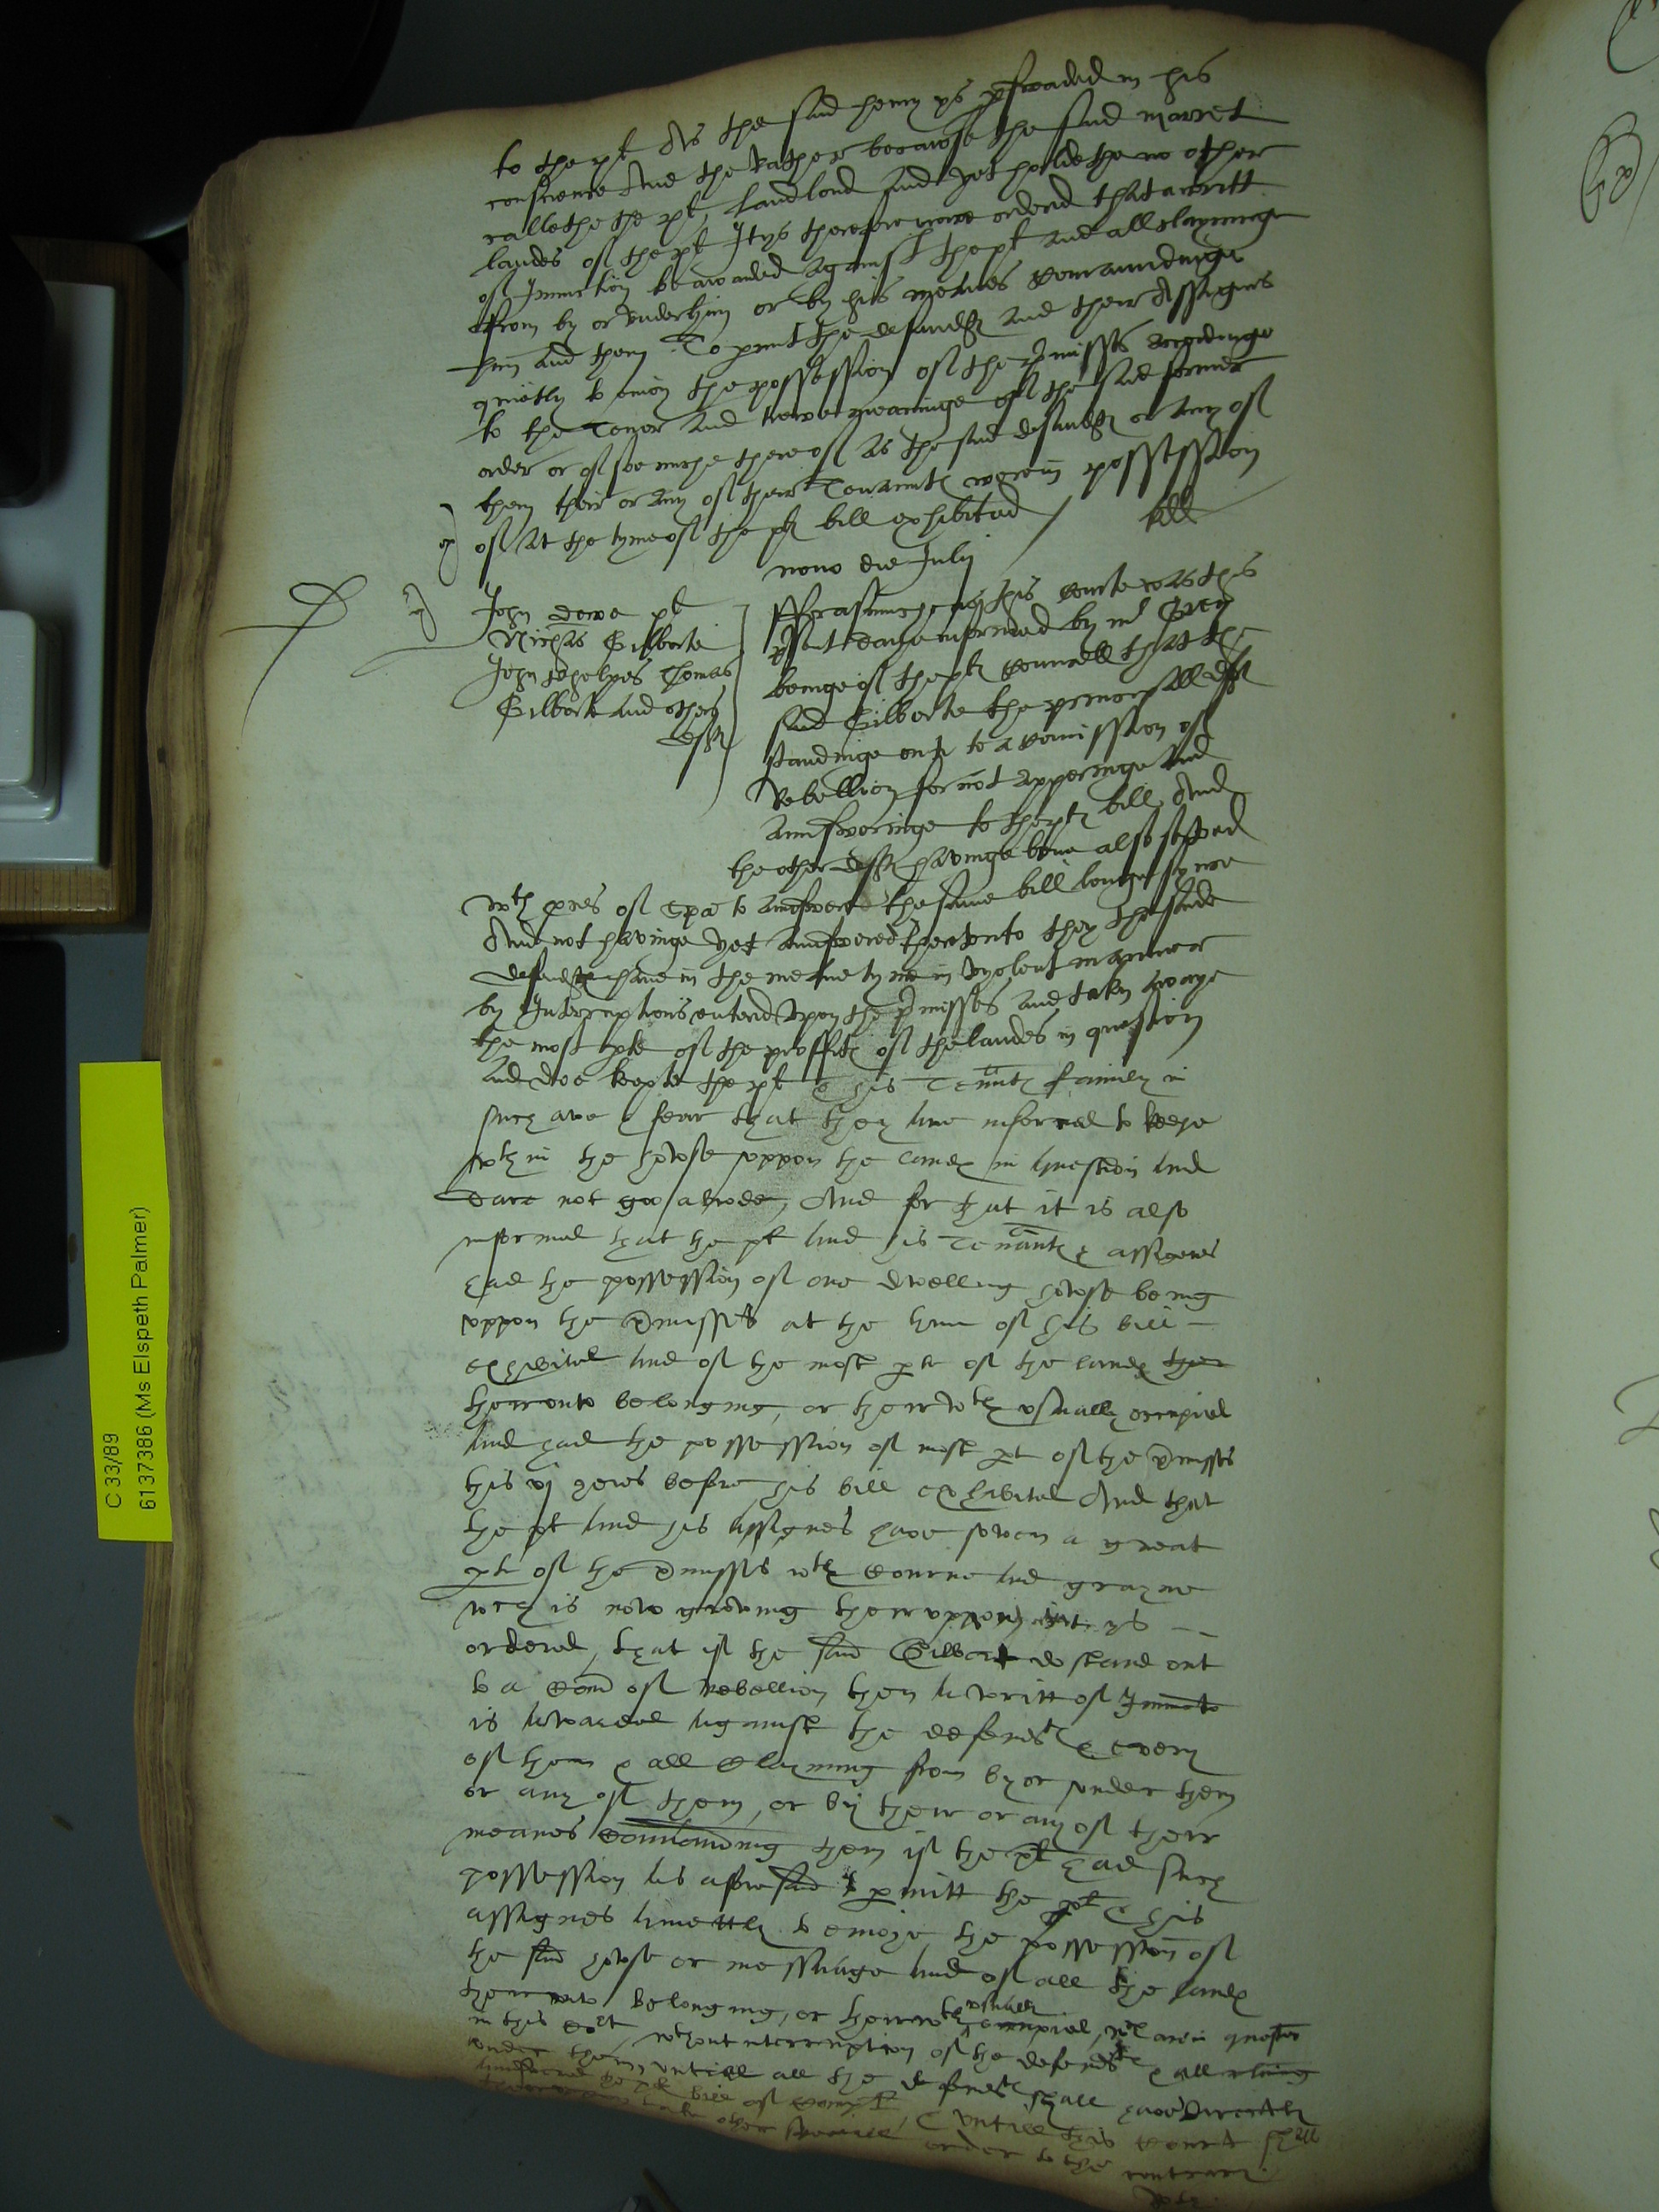 to the pt As the said henry ys pswaded in his
conscience And the Rather becawse the said
callethe the pt landlord And yet holdethe no other
landes of the pt Itys therefore nowe ordered that a writt
of Iniunction be awarded against the pt And all clayminge
from by or vnder hym or by his meanes comaundinge
him and them To pmitt the defendtes And their Assignes
quietly to enioy the possession of the pmisses accordinge
to the Tenor And trewe meaninge of the said former
order or of soe muche there of As the said defendtes or Any of
them their or Any of their Tenanntes were in possession
of At the tyme of the ptes bill exhibited
nono die Julij
John Dowe pt
Nichas Gilberte
John Phelpes Thomas
Gilberte And others
deftes
fforasmuche as this courte was this
psent daye informed by mr
beinge of the ptes councell that the
said Gilberte the principall deft
standinge out to a comission of
Rebellion for not apperinge And
Aunsweringe to the ptes bill And
the other deftes havinge bene also served
wth pces of spa to Aunswere the same bill longe synce
And not havinge yet Aunswered therevnto they the saide
defendtes have in the meane tyme in vyolent manner
by Interruptions entered vpon the pmisses And taken awaye
the most pte of the proffittes of the landes in question
And doe keepe the pt & his Tenntes family in
such awe & feare that they are inforced to keepe
wthin the howse vppon the landes in question And
dare not goe abrode, And for that it is also
informed that the pt And his Tenantes & assignes
had the possession of one dwelling howse being
vppon the pmisses at the time of his bill
exhibited And of the most pte of the landes ther
therevnto belonging, or therewth vsually occupied
And had the possession of most pte of the pmisses
this vj yeres before his bill exhibited And that
the pt And his Assignes have sowen a great
pte of the pmisses wth corne And grayne
wch is now growing therevppon, it ys
ordered, that if the said Gilbert do stand out
to a Com of Rebellion then A writt of Iniuncto
is Awarded Against the defendtes & every
of them & all clayming from by or vnder them
or any of them, or by their or any of their
meanes comaunding them if the pt had such
possession As aforesaid to pmitt the pt & his
assignes quiettly to enioye the possession of
the said howse or messuage And of all the landes
therevnto belonging, or therewth vsually occupied, wch are in question
in this cort, wthout interruption of the defendtes & all
vnder them, vntill all the defendtes shall have directly
Answered the ptes bill of & vntill this Court shall
take other order to the contrary
C 33/89
6137386 (Ms Elspeth Palmer)